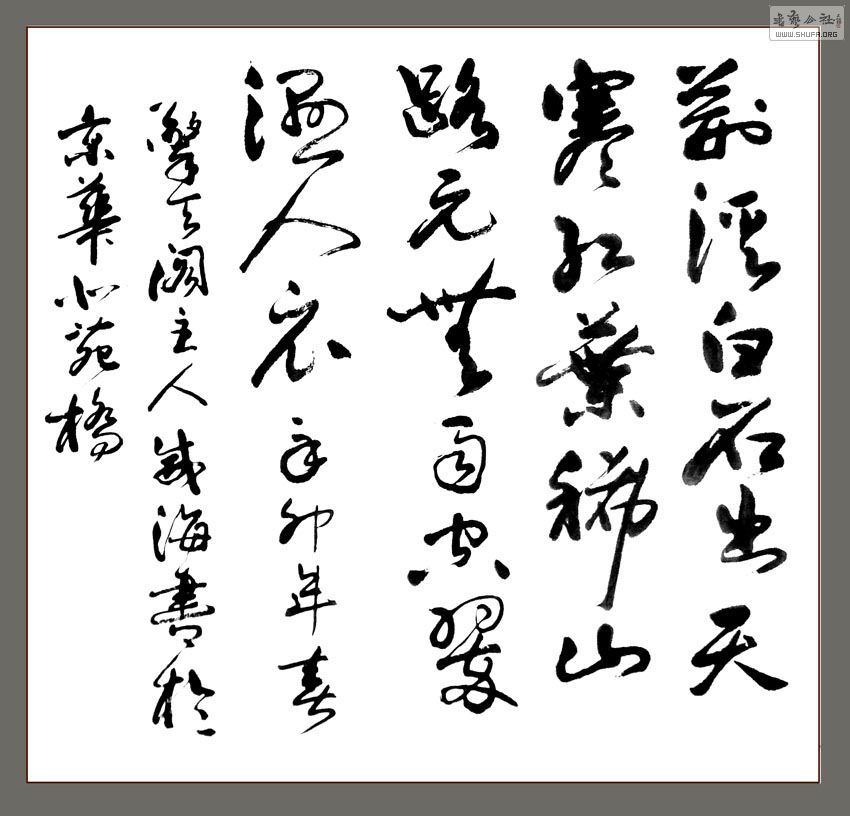 荆溪白石出天
寒红葉稀山
路元無雨空翠
濕人衣 辛卯年春
擎天阁主人 海書於
京華北苑橋
書藝公社
WWW.SHUFA.ORG